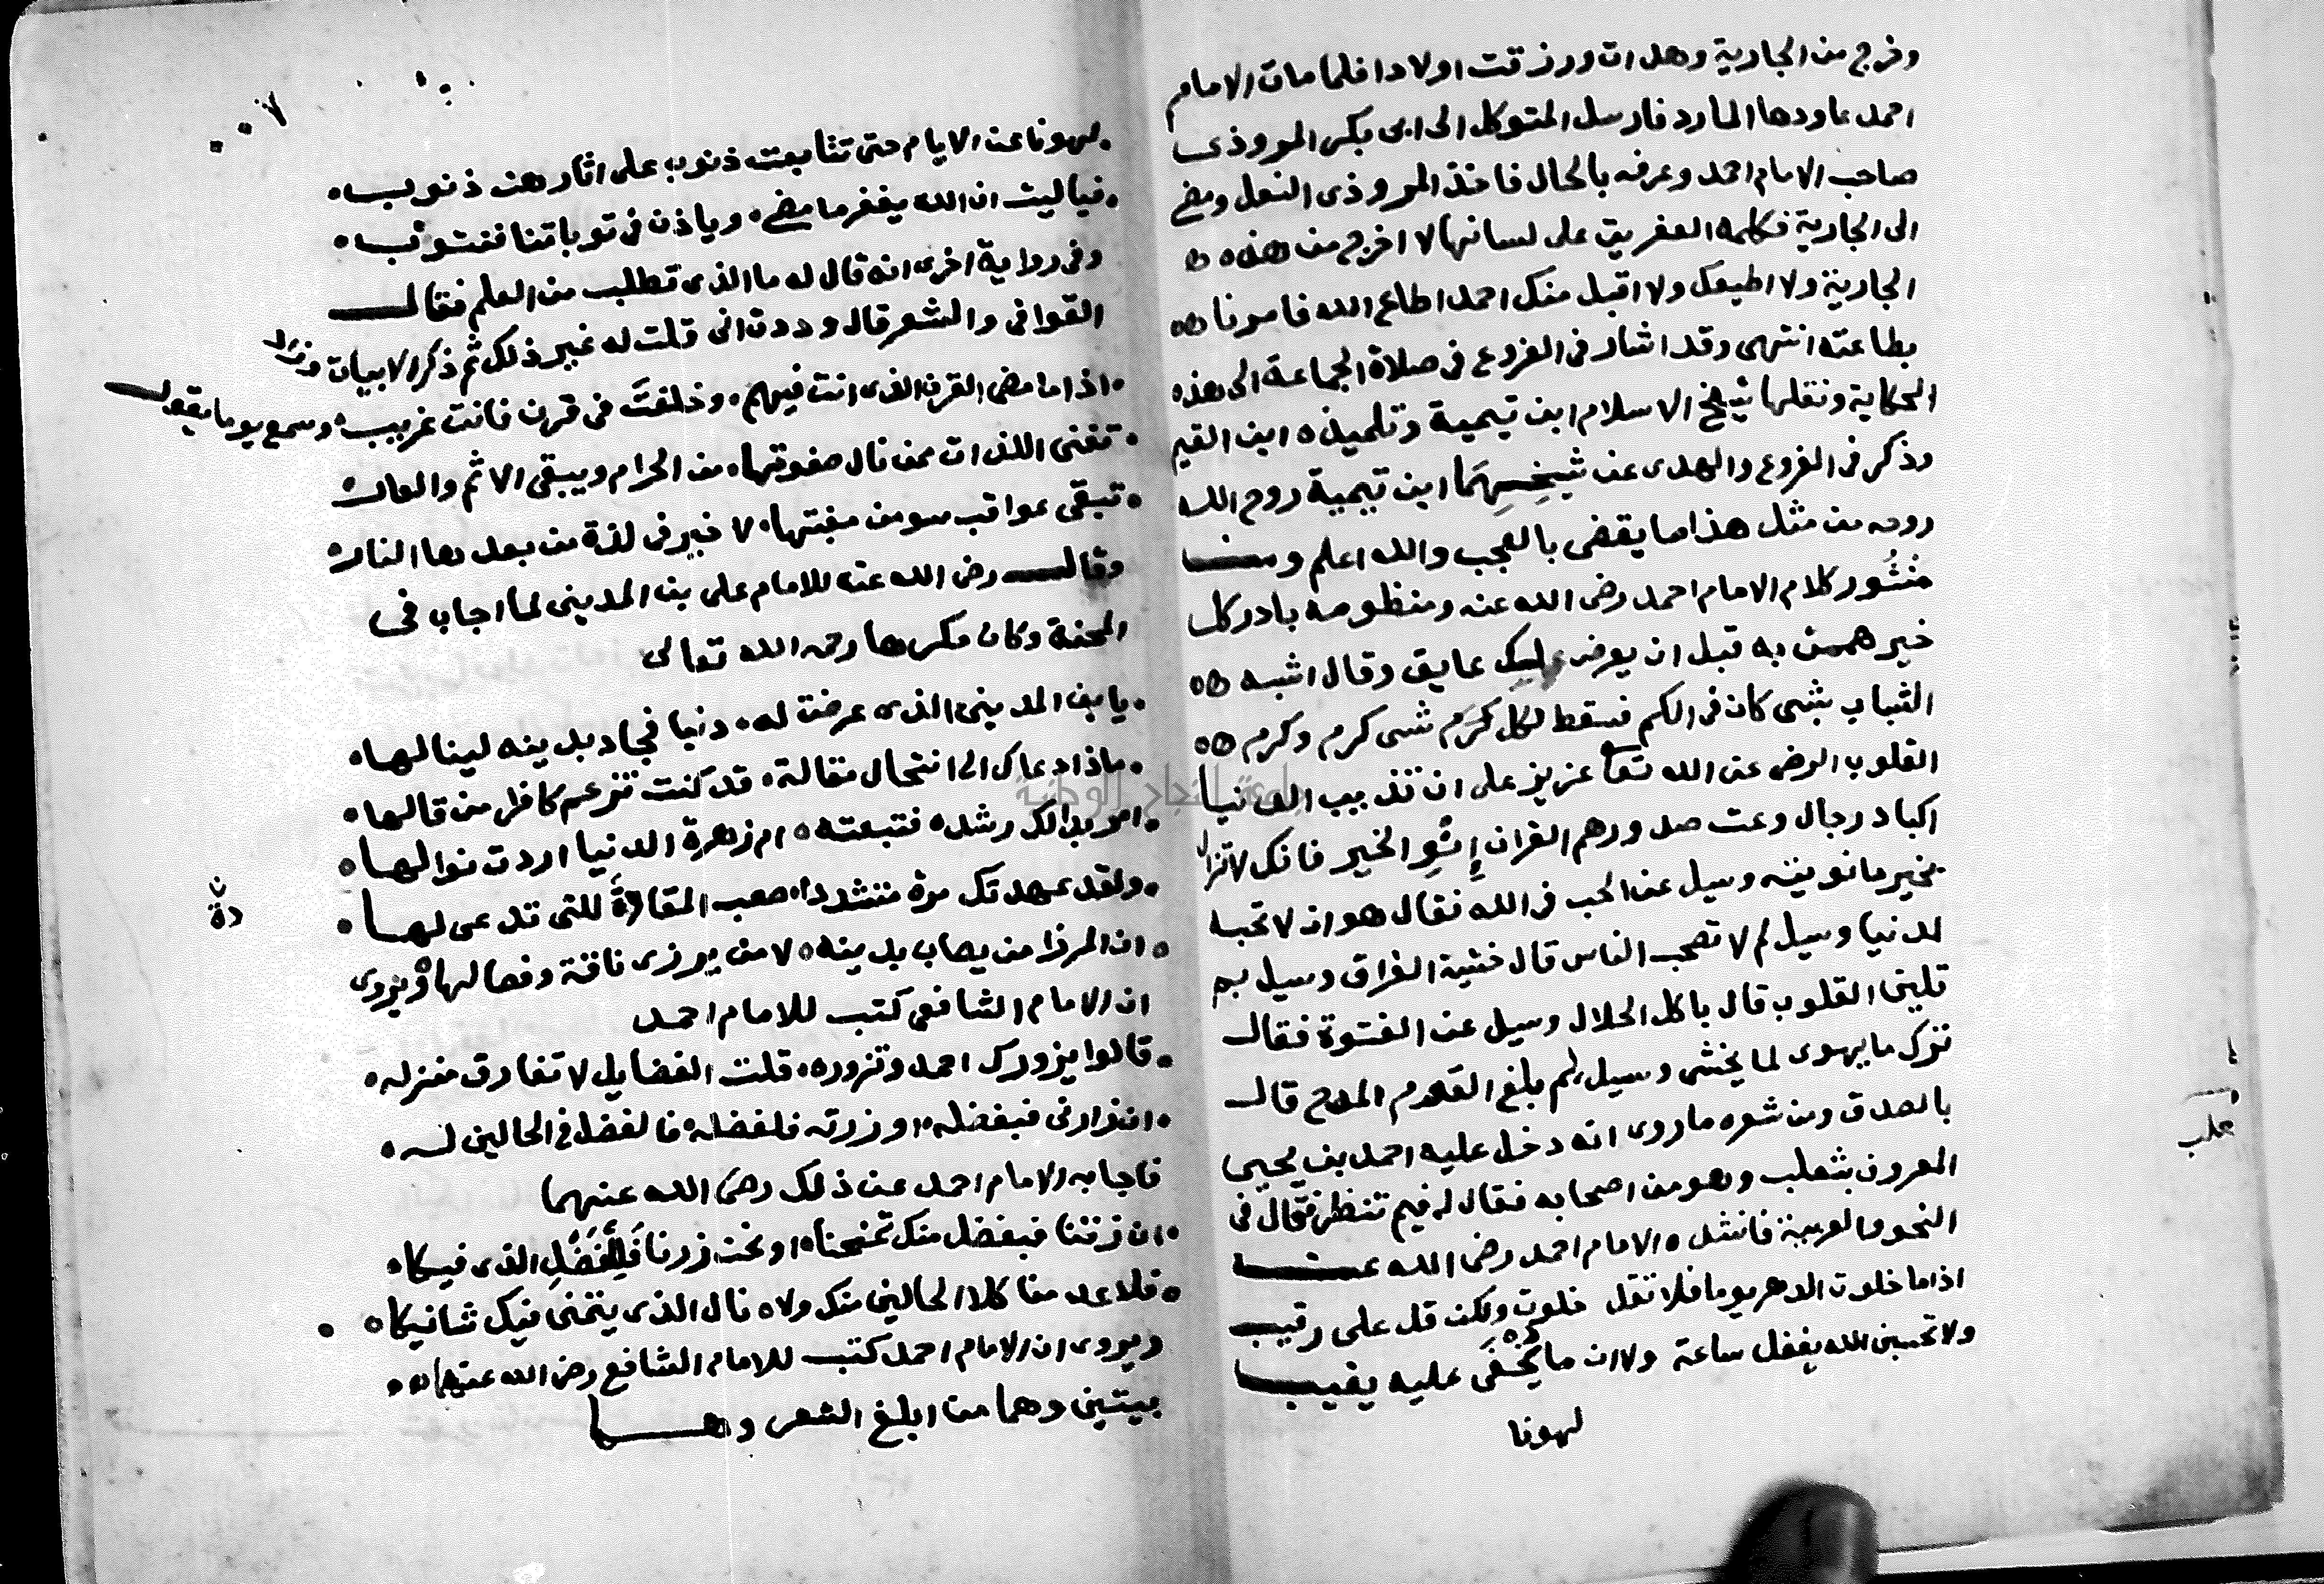 وخرج من الجارية وهدات ورزقت اولادا فلما مات الامام
احمد عاودها المارد فارسل المتوكل الى ابى بكر المروذى
صاحب الامام احمد وعرفه بالحال فاخذ المروذى النعل ومضى
الى الجارية فكلمه العفريت على لسانها لا اخرج من هذه
الجارية ولا اطيعك ولا اقبل منك احمد اطاع الله فامرنا
بطاعته انتهى وقد اشار فى الفروع فى صلاة الجماعة الى هذه
الحكاية ونقلها شيخ الاسلام ابن تيمية وتلميذه ابن القيم
وذكر فى الفروع والهدى عن شيخهما ابن تيمية روح الله
روحه من مثل هذا ما يقضى بالعجب والله اعلم ومن
منثور كلام الامام احمد رضى الله عنه ومنظومه بادر كل
خير هممت به قبل ان يعرض عليك عايق وقال اشبه
الشباب بشى كان فى الكم فسقط لكل كرم شى كرم وكرم
القلوب الرضى عن الله تعا عزيز على ان تذيب الدنيا
اكباد رجال وعت صدورهم القران إنو الخير فانك لا تزال
بخير ما نويته وسيل عن الحب فى الله فقال هو ان لا تحبه
لدنيا وسيل لم لا تصحب الناس قال خشية الفراق وسيل بم
تلين القلوب قال باكل الحلال وسيل عن الفتوة فقال
ترك ما يهوى لما يخشى وسيل بم بلغ القوم المدح قال
بالصدق ومن شعره ما روى انه دخل عليه احمد بن يحيى
المعروف بثعلب وهو من اصحابه فقال له فيم تنظر فقال فى
النحو والعربية فانشده الامام احمد رضى الله عنه
اذا ما خلوت الدهر يوما فلا تقل خلوت ولكن قل على رقيب
ولا تحسبن الله يغفل ساعة ولا ان ما يخفى عليه يغيب
لهونا
ثعلب
لهونا عن الايام حتى تتابعت ذنوب على اثارهن ذنوب
فياليت ان الله يغفر ما مضى وياذن فى توباتنا فنتوب
وفى رواية اخرى انه قال له ما الذى تطلب من العلم فقال
القوافى والشعر قال وددت انى قلت له غير ذلك ثم ذكر الابيات وزاد
اذا ما مضى القرن الذى انت فيهم وخلفت فى قرن فانت غريب وسمع يوما يقول
تفنى اللذات ممن نال صفوتها من الحرام ويبقى الاثم والعار
تبقى عواقب سو من مغبتها لا خير فى لذة من بعدها النار
وقال رضى الله عنه للامام على بن المدينى لما اجاب فى
المحنة وكان مكرها رحمه الله تعالى
يا بن المدينى الذى عرضت له دنيا فجاد بدينه لينالها
ماذا دعاك الى انتحال مقالة قد كنت تزعم كافرا من قالها
امر بدا لك رشده فتبعته ام زهرة الدنيا اردت نوالها
ولقد عهدتك مرة متشددا صعب المقادة للتى تدعى لها
دة
ان المرزا من يصاب بدينه لا من يرزى ناقة وفصالها ويروى
ان الامام الشافعى كتب للامام احمد
قالوا يزورك احمد وتزوره قلت الفضايل لا تفارق منزله
ان زارنى فبفضله او زرته فلفضله فالفضل فى الحالين له
فاجابه الامام احمد عن ذلك رضى الله عنهما
ان زرتنا فبفضل منك تمنحنا او نحن زرنا فللفضل الذى فيكا
فلا عدمنا كلا الحالين منك ولا نال الذى يتمنى فيك شانيكا
ويروى ان الامام احمد كتب للامام الشافعى رضى الله عنهما
بيتين وهما من ابلغ الشعر وهما
جامعة النجاح الوطنية